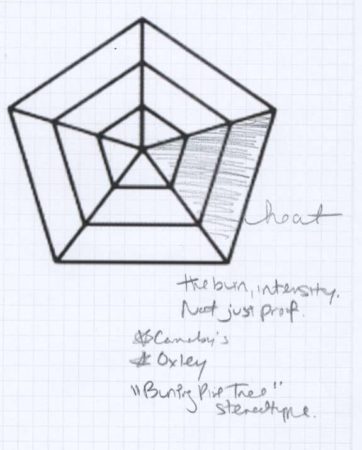 heat
the burn, intensity.
Not just proof.
Oxley
"Burning Pine Tree"
stereotype.